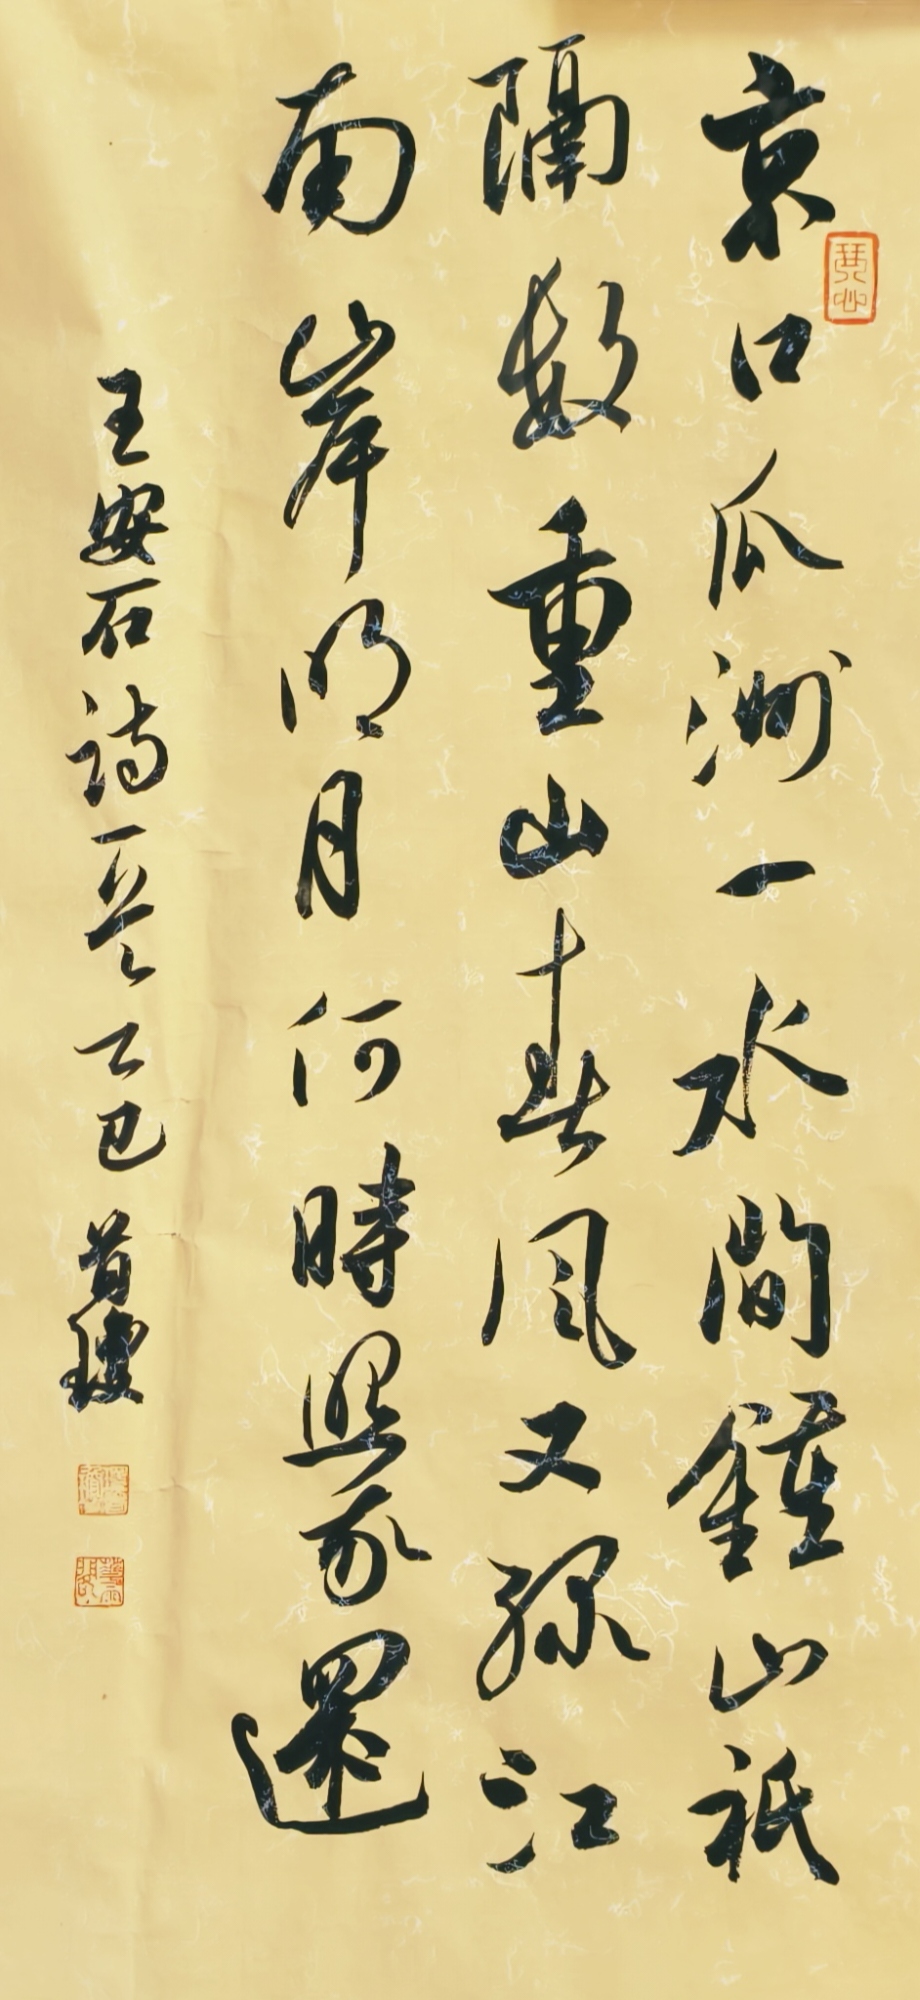 京口瓜洲一水間鍾山祇
隔數重山春風又綠江
南岸明月何時照我還
王安石詩一首乙巳
琴心